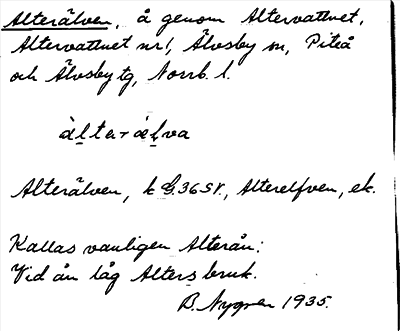 Alterälven, å genom Altervattnet,
Altervattnet nr 1, Älvsby sn, Piteå
och Älvsby tg, Norrb. l.
àlter-æ̀lva
Alterälven, k G. 36 SV., Alterelfven, ek.
Kallas vanligen Alterån:
Vid ån låg Alters bruk.
B. Nygren 1935.